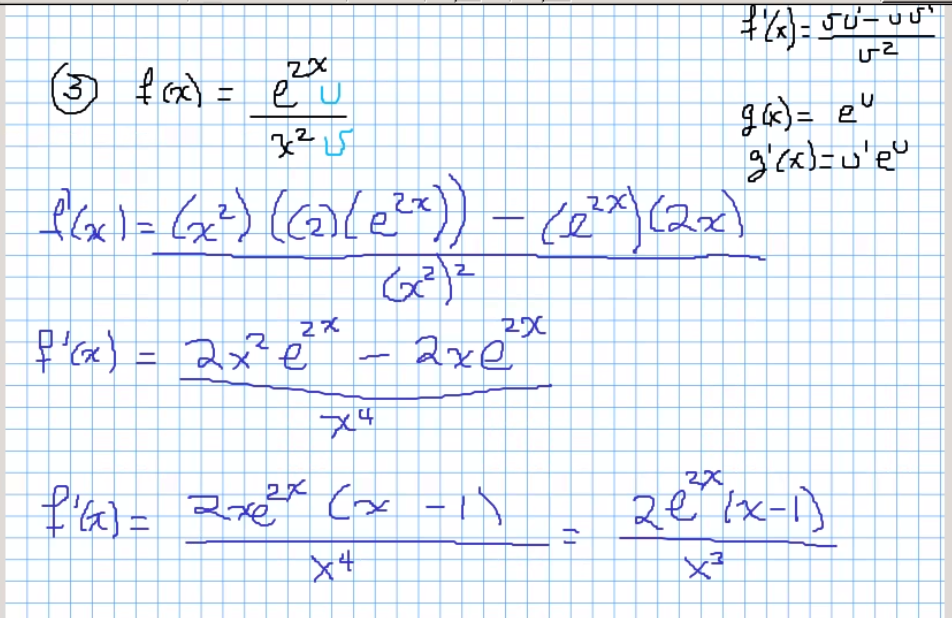 f'(x) = (vu' - uv')/v²
③ f(x) = e^(2x) u / x² v
g(x) = e^u
g'(x) = u'e^u
f'(x) = ((x²)((2)(e^(2x))) - (e^(2x))(2x))/(x²)²
f'(x) = (2x²e^(2x) - 2xe^(2x))/x⁴
f'(x) = 2xe^(2x)(x - 1)/x⁴ = 2e^(2x)(x-1)/x³